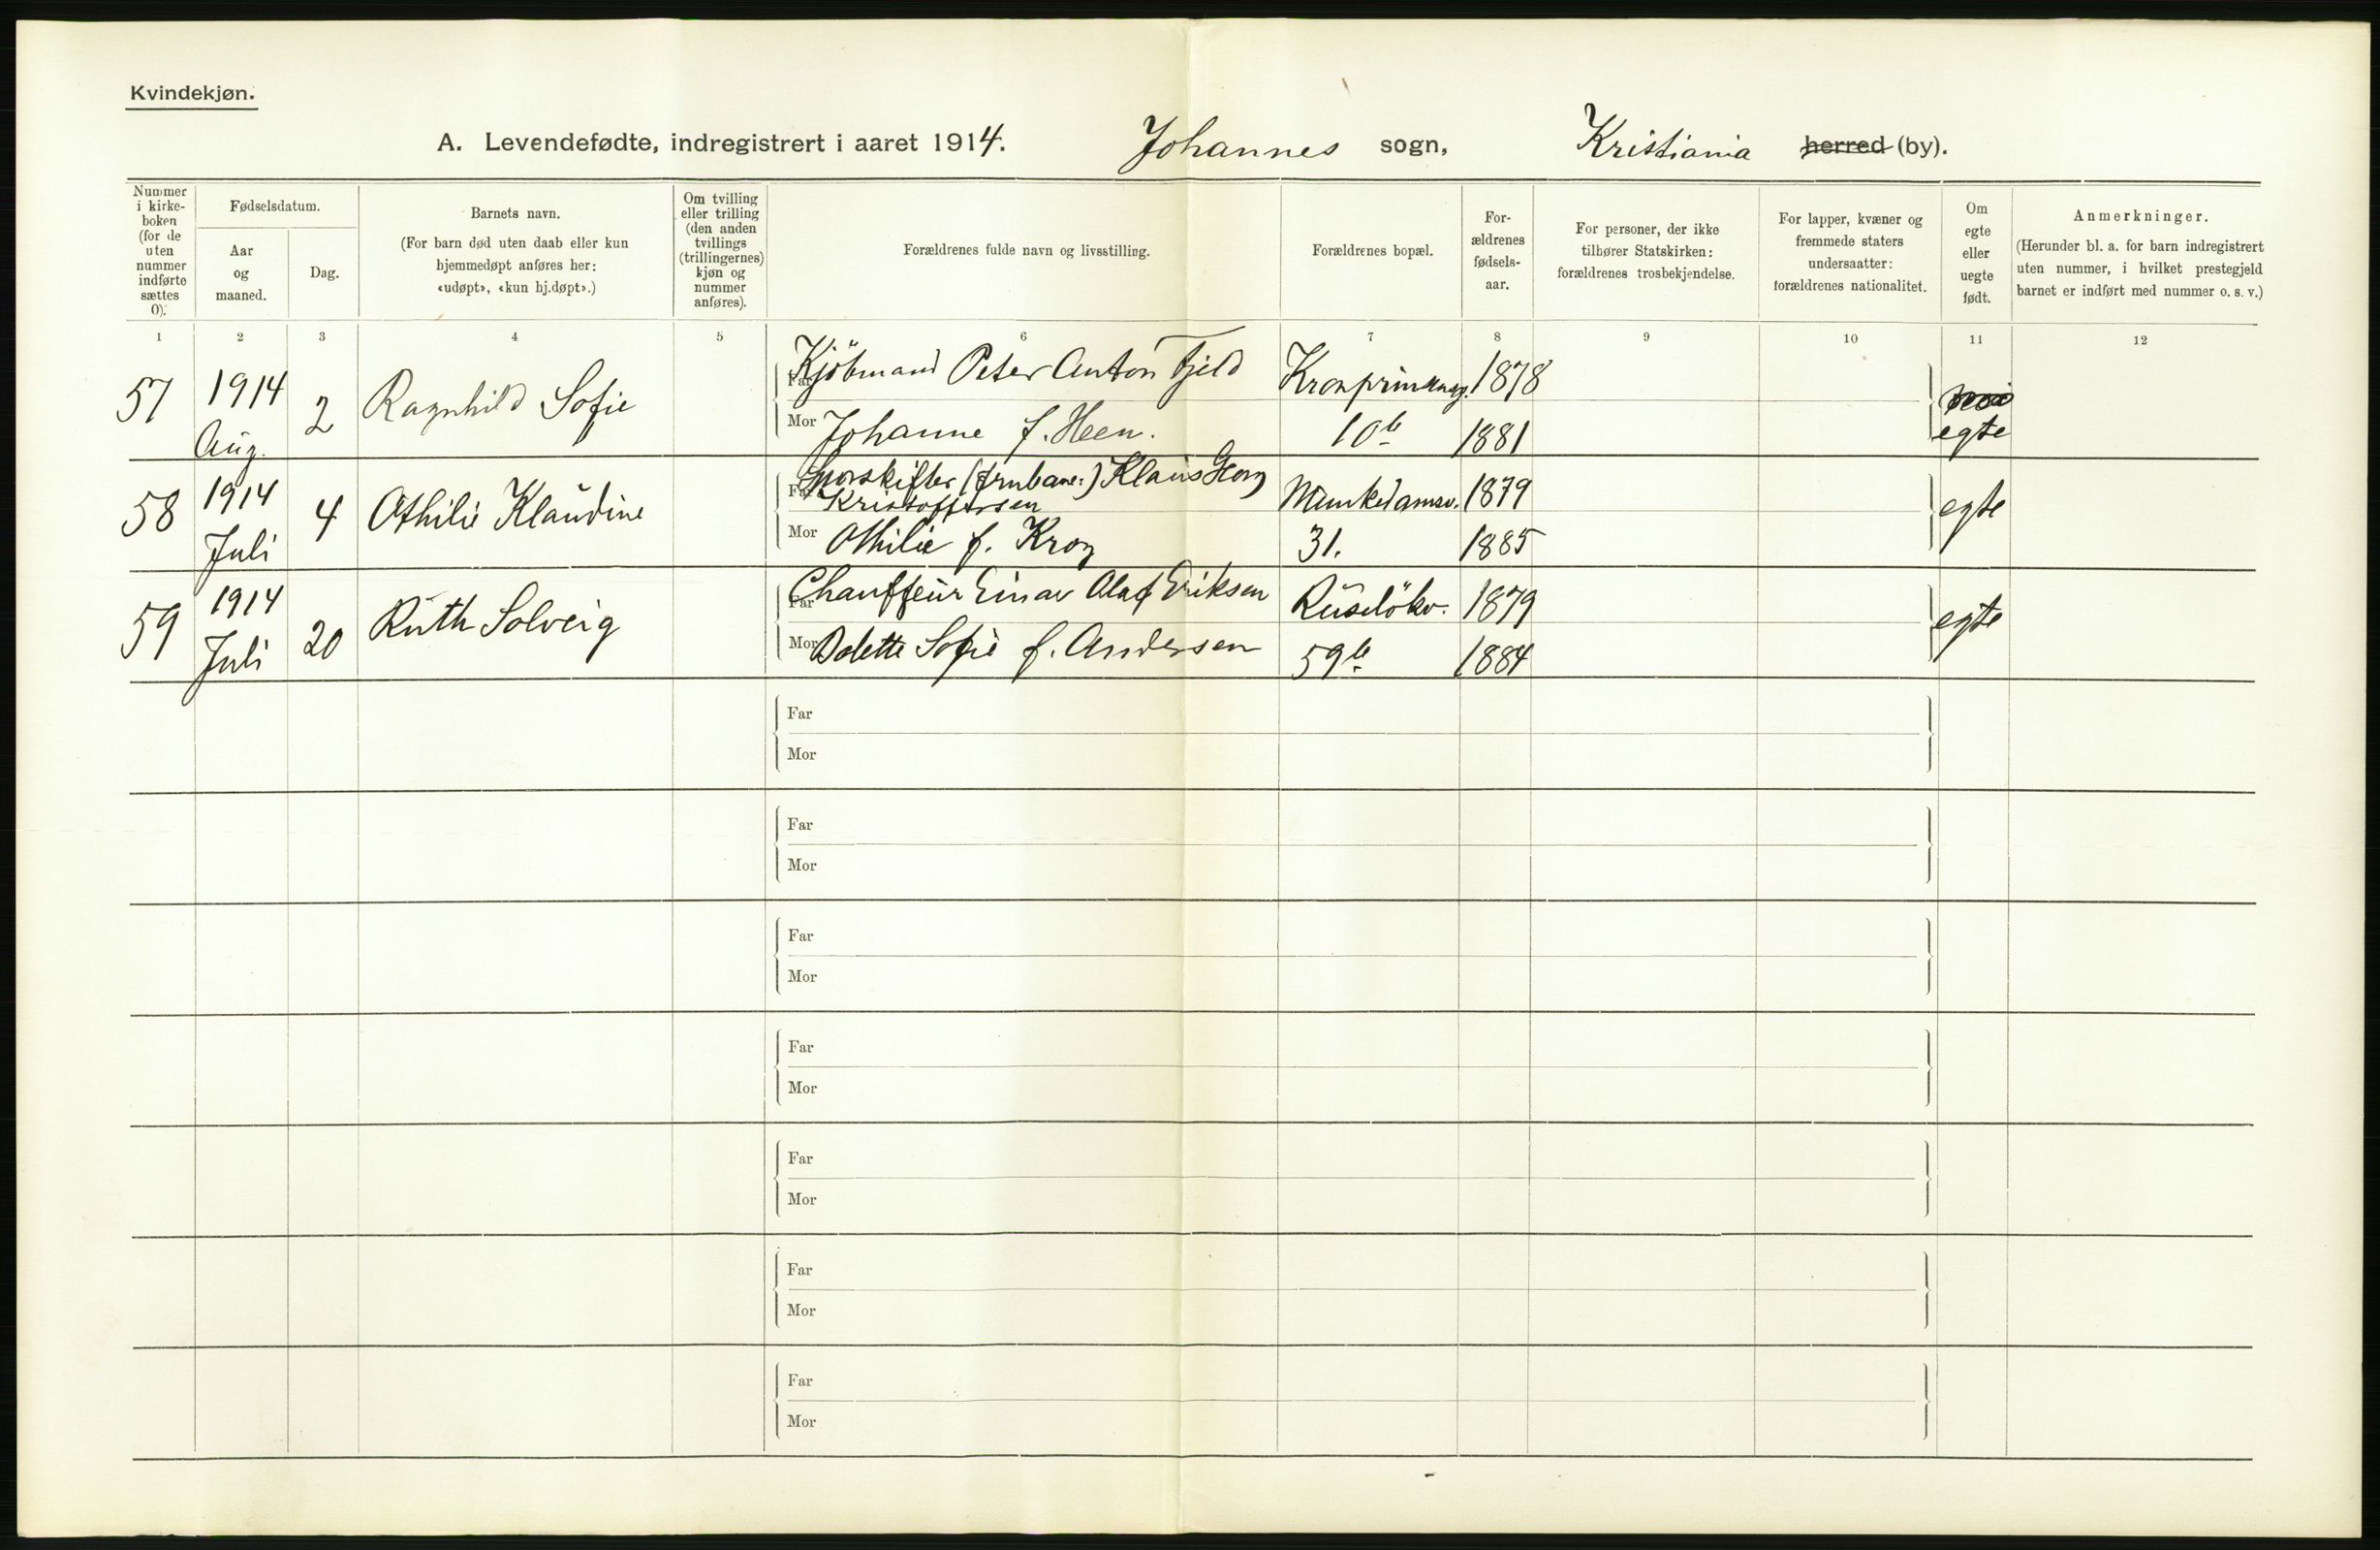 Kvindekjøn.
A. Levendefødte, indregistrert i aaret 1914. Johannes sogn, Kristiania herred (by).
Nummer
i kirke-
boken
(for de
uten
nummer
indførte
sættes
0).
Fødselsdatum.
Aar
og
maaned.
Dag.
Barnets navn.
(For barn død uten daab eller kun
hjemmedøpt anføres her:
«udøpt», «kun hj.døpt».)
Om tvilling
eller trilling
(den anden
tvillings
(trillingernes)
kjøn og
nummer
anføres).
Forældrenes fulde navn og livsstilling.
Forældrenes bopæl.
For-
ældrenes
fødsels-
aar.
For personer, der ikke
tilhører Statskirken:
forældrenes trosbekjendelse.
For lapper, kvæner og
fremmede staters
undersaatter:
forældrenes nationalitet.
Om
egte
eller
uegte
født.
Anmerkninger.
(Herunder bl. a. for barn indregistrert
uten nummer, i hvilket prestegjeld
barnet er indført med nummer o. s. v.)
1 2 3 4 5 6 7 8 9 10 11 12
57 1914 Aug. 2 Ragnhild Sofie
Far Kjöbmand Peter Anton Fjeld Kronprinsensg. 1878
Mor Johanne f. Heen. 10b 1881 egte
58 1914 Juli 4 Othilie Klaudine
Far Sporskifter (Jrnbane:) Klaus Georg
Kristoffersen Munkedamsv. 1879 egte
Mor Othilie f. Krog 31. 1885
59 1914 Juli 20 Ruth Solveig
Far Chauffeur Einar Olaf Eriksen Ruselökv. 1879 egte
Mor Dolette Sofie f. Andersen 59b. 1884
Far
Mor
Far
Mor
Far
Mor
Far
Mor
Far
Mor
Far
Mor
Far
Mor